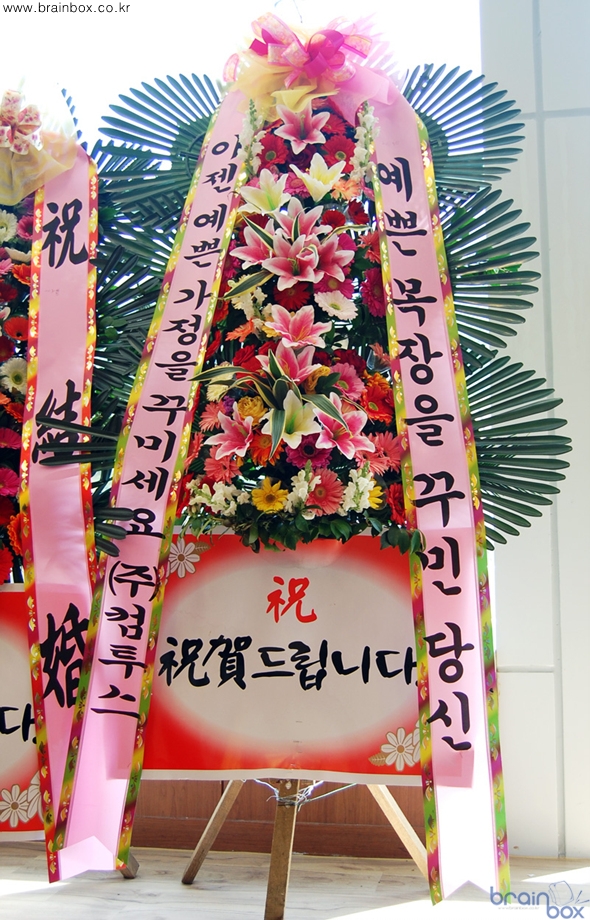 www.brainbox.co.kr
祝 結 婚
예쁜 목장을 꾸민 당신
이젠 예쁜 가정을 꾸미세요 (주)컴투스
祝
祝賀드립니다.
다.
brain box